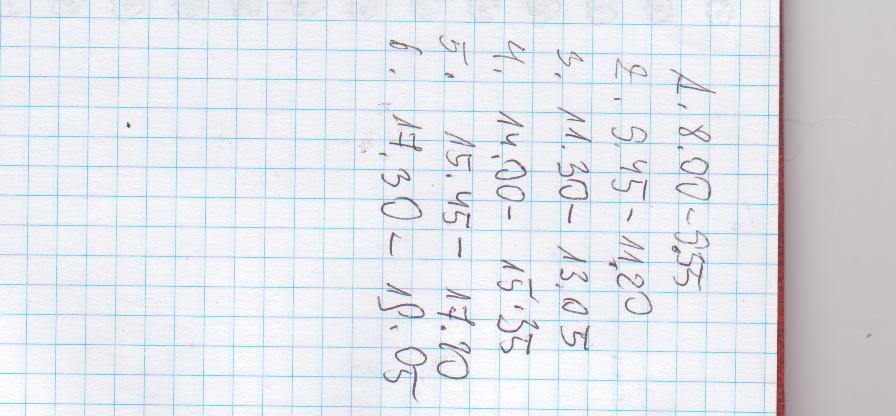 1. 8.00 - 9.35
2. 9.45 - 11.20
3. 11.30 - 13.05
4. 14.00 - 15.35
5. 15.45 - 17.20
6. 17.30 - 19.05